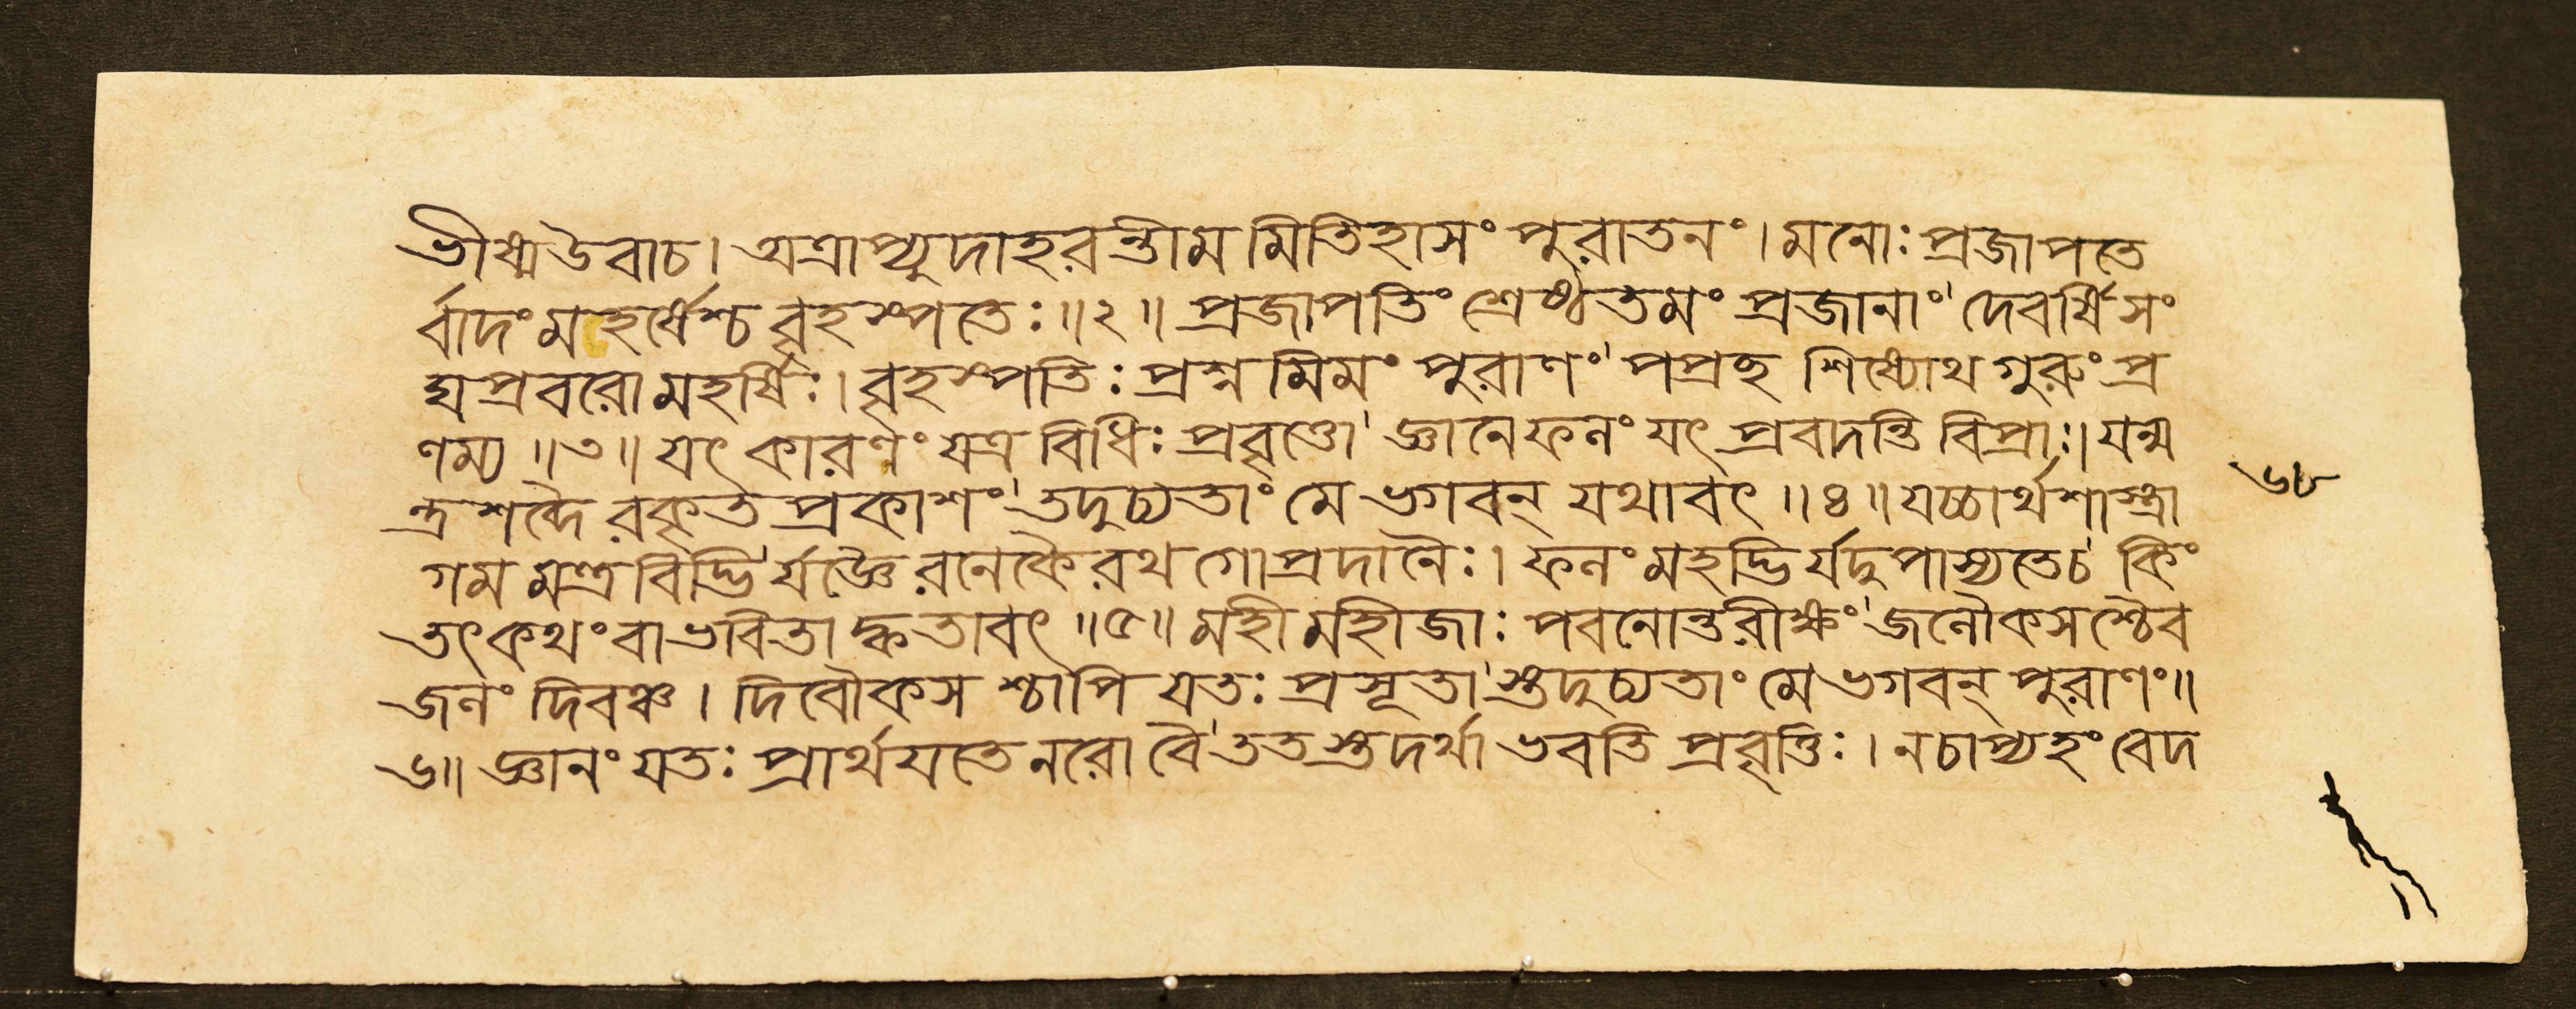 ভীষ্মউবাচ। অত্রাপ্যুদাহরন্তীমমিতিহাসং পুরাতনং। মনোঃ প্রজাপতে
র্বাদং মহর্ষেশ্চ বৃহস্পতেঃ॥২॥ প্রজাপতিং শ্রেষ্ঠতমং প্রজানাং দেবর্ষিসং
ঘপ্রবরো মহর্ষিঃ। বৃহস্পতিঃ প্রশ্নমিমং পুরাণং পপ্রছ শিষ্যোথ গুরুং প্র
ণম্য ॥৩॥ যৎ কারণং যত্র বিধিঃ প্রবৃত্তো জ্ঞানেফলং যৎ প্রবাদন্তি বিপ্রাঃ। যন্ম
ন্ত্রশব্দৈরকৃতপ্রকাশং তদুচ্যতাং মে ভগবন্ যথাবৎ ॥৪॥ যচ্চার্থশাস্ত্রা
গমমন্ত্রবিদ্ভির্যজ্ঞৈরনেকৈরথ গোপ্রদানৈঃ। ফলং মহদ্ভির্যদুপাস্যতেচ কিং
তৎ কথং বা ভবিতা ক্কতাবৎ ॥৫॥ মহী মহীজাঃ পবনোন্তরীক্ষং জলৌকসশ্চৈব
জলং দিবঞ্চ। দিবৌকসশ্চাপি যতঃ প্রসূতাস্তদুচ্যতাং মে ভগবন্ পুরাণং॥
৬॥ জ্ঞানং যতঃ প্রার্থযতে নরো বৈ ততস্তদর্থা ভবতি প্রবৃত্তিঃ। নচাপ্যহং বেদ
৬৮